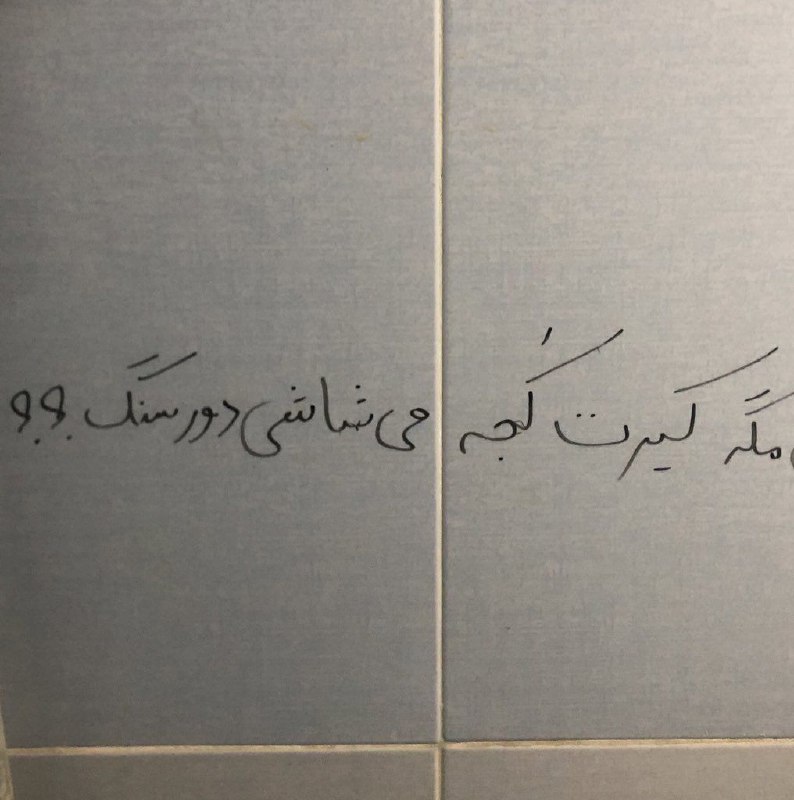 مگه کیرت کُجه می شاشی دور سنگ ؟؟